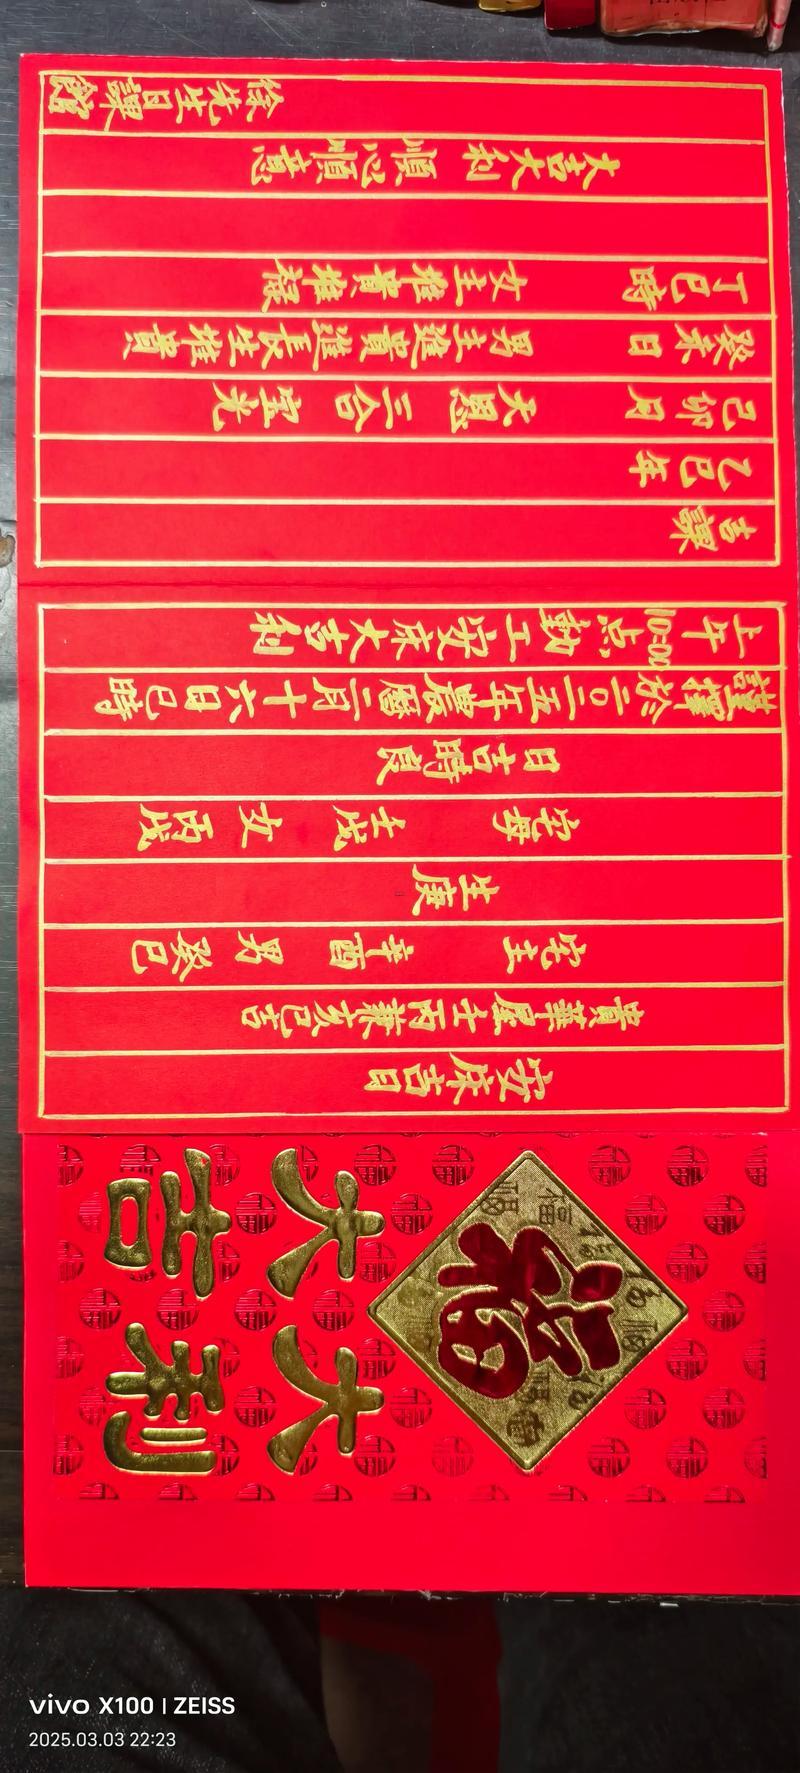 福
大吉大利
安床吉日
貴華屋壬丙兼亥巳吉
宅主 辛酉 男 癸巳
生庚
宅母 壬戌 女 丙戌
日吉時良
謹擇於二〇二五年農曆二月十六日巳時
上午10:00点動工安床大吉利
吉課
乙巳年
己卯月 天恩 三合 宝光
癸未日 男主進貴進長生堆貴
丁巳時 女主堆貴堆祿
大吉大利 順心順意
徐先生日課館
vivo X100 | ZEISS
2025.03.03 22:23